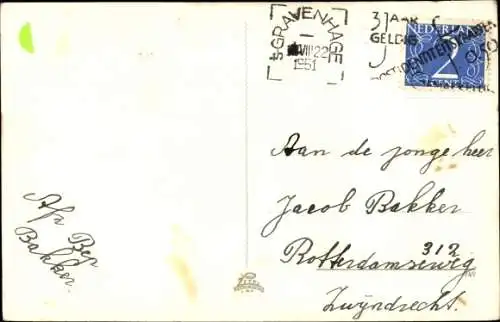 'sGRAVENHAGE
VIII 22
1951
3 JAAR
GELDIG
POSTIDENTITEITSKAART
NEDERLAND
2
CENT
Aan de jonge heer
Jacob Bakker
Rotterdamseweg 312
Zwijndrecht.
Afz Bep
Bakker.